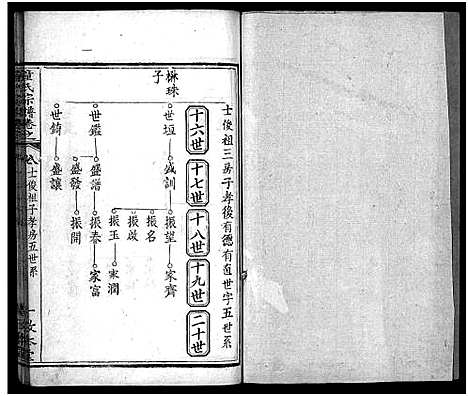 士俊祖三房子孝後有德有直世字五世系
十六世
十七世
十八世
十九世
二十世
楙珠子
世垣
盛訓
振望
家齊
振名
振啟
振玉
家潤
世鑑
盛譜
振泰
家富
盛發
振開
世錡
盛讓
氏宗譜卷之
士俊祖子孝房五世系
一